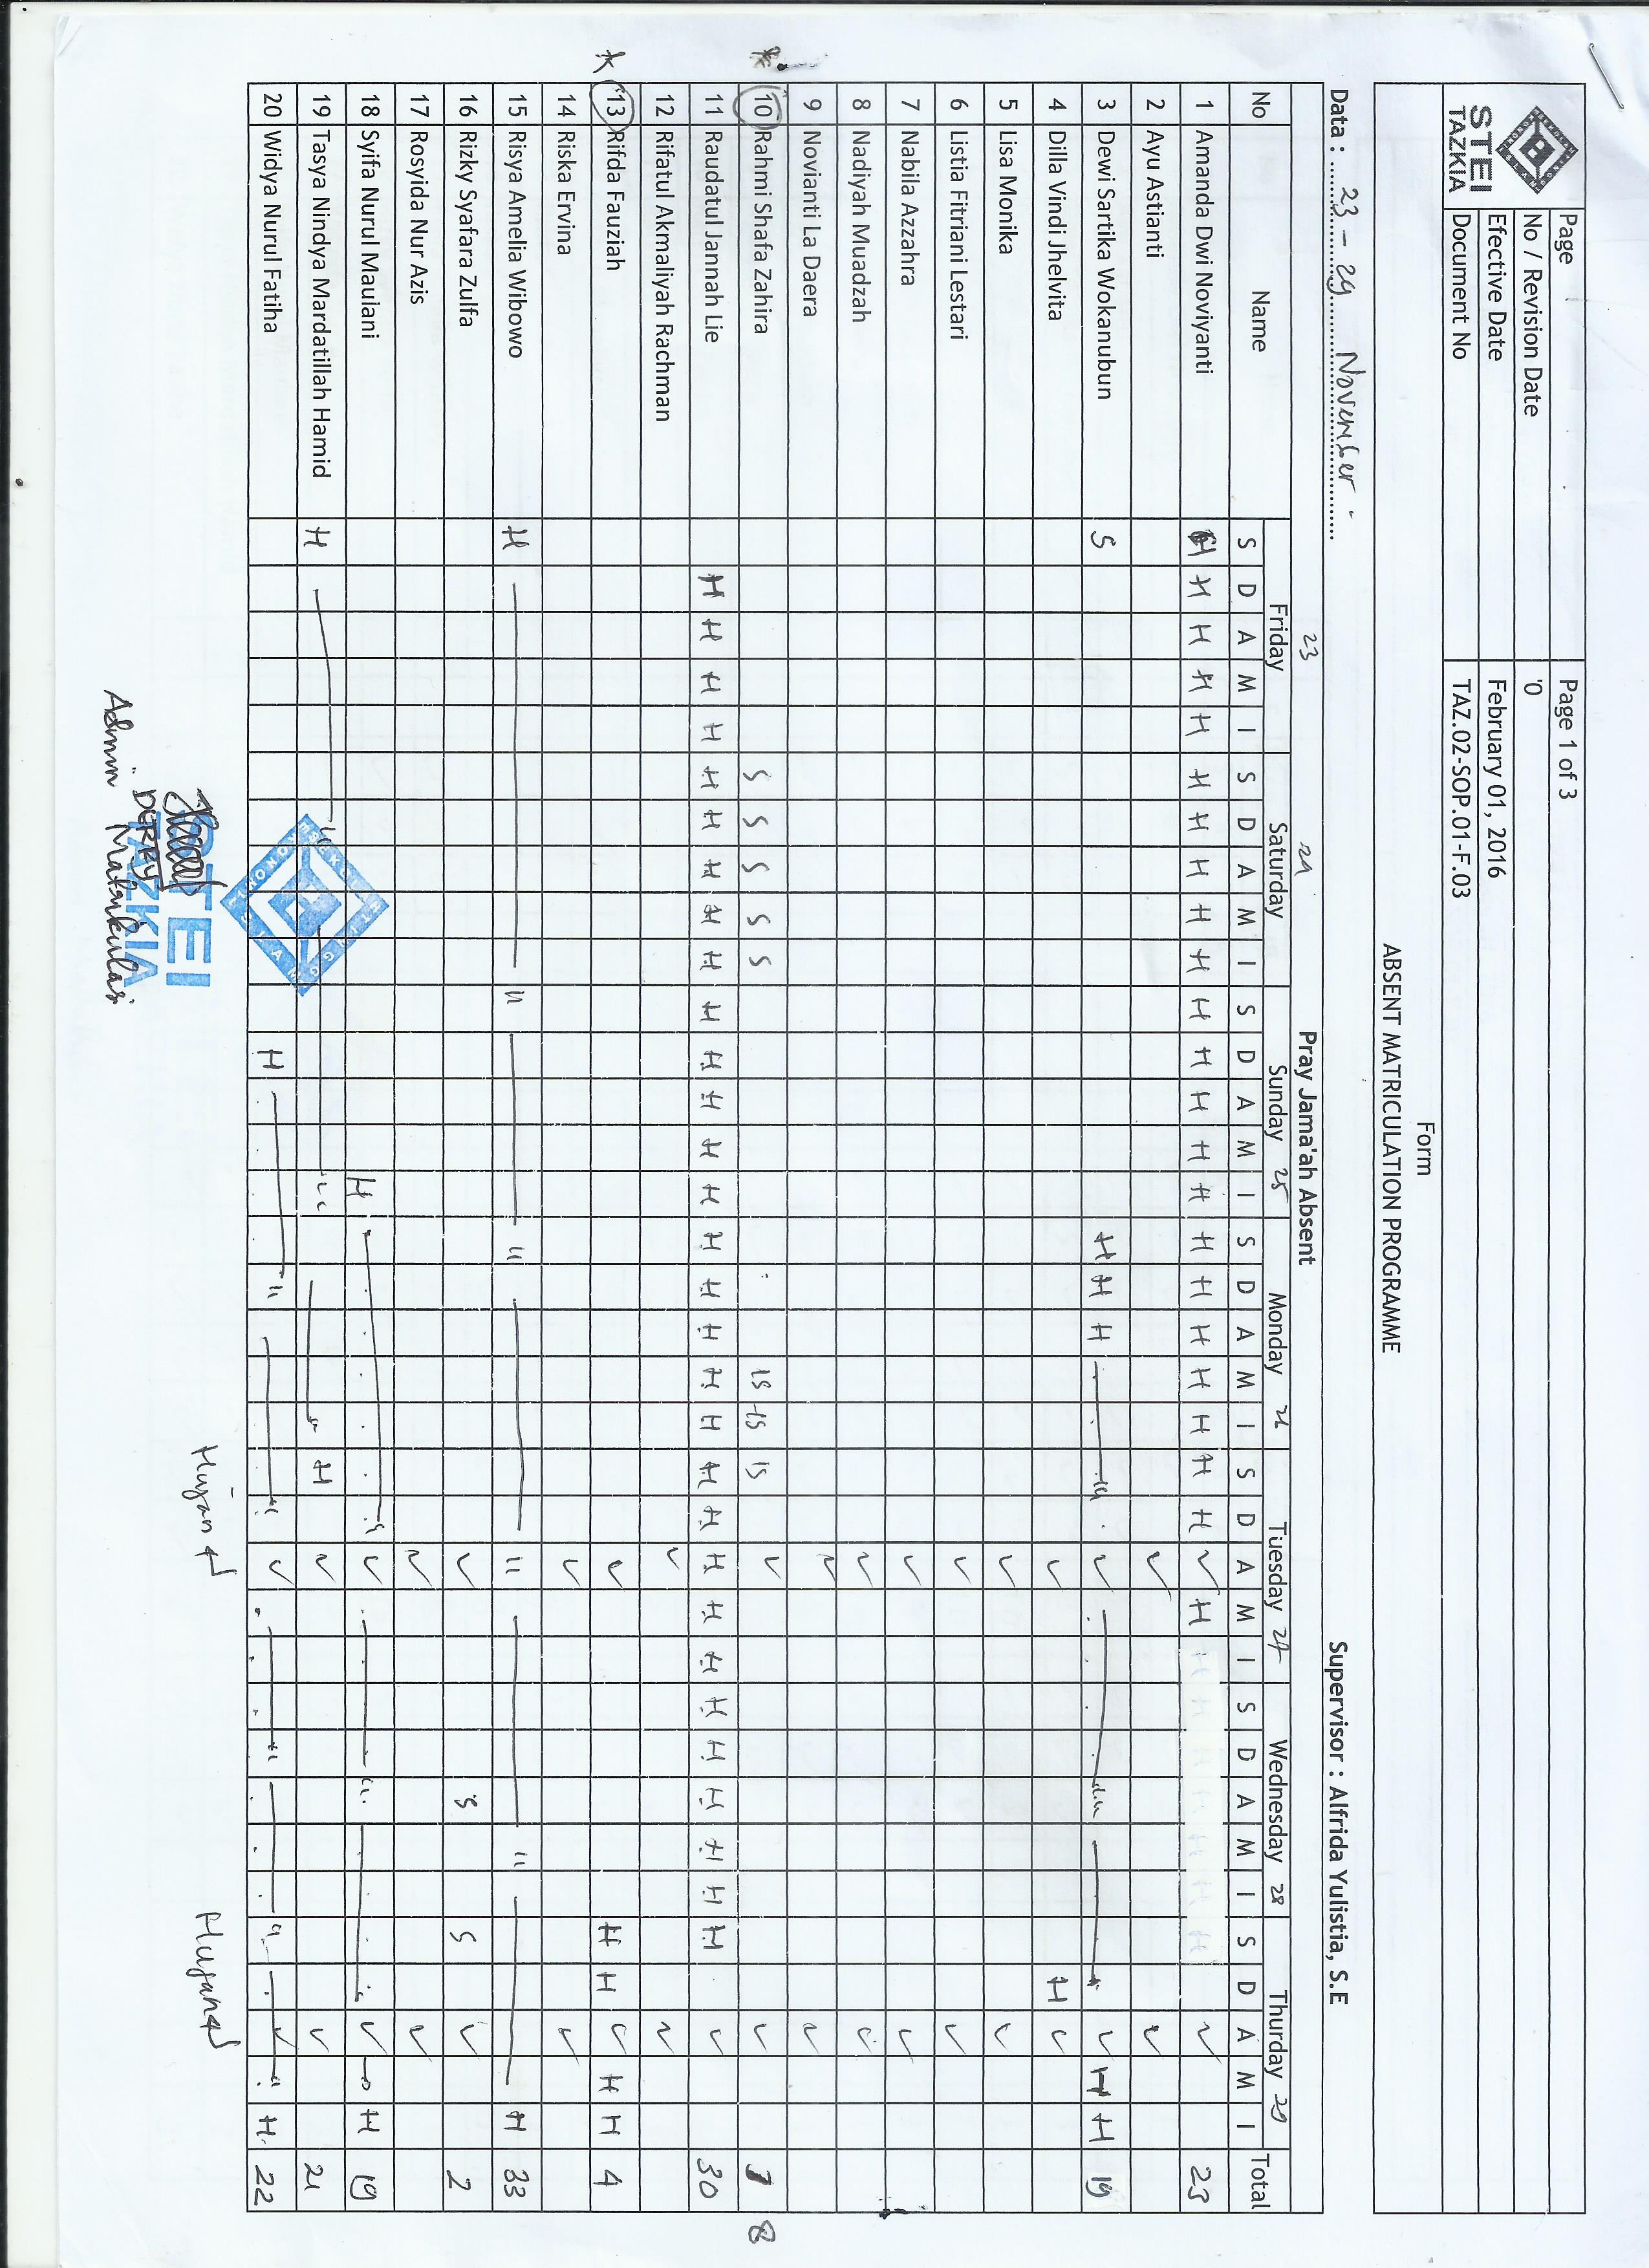 STEI
TAZKIA
Page Page 1 of 3
No / Revision Date '0
Efective Date February 01, 2016
Document No TAZ.02-SOP.01-F.03
Form
ABSENT MATRICULATION PROGRAMME
Data : 23 - 29 November
Supervisor : Alfrida Yulistia, S.E
Pray Jama'ah Absent
23 24
No Name Friday Saturday Sunday 25 Monday 26 Tuesday 27 Wednesday 28 Thurday 29 Total
S D A M I S D A M I S D A M I S D A M I S D A M I S D A M I S D A M I
1 Amanda Dwi Noviyanti H H H H H H H H H H H H H H H H H H H H H H ✓ H H H H H H H H ✓ 23
2 Ayu Astianti ✓ ✓
3 Dewi Sartika Wokanubun S H H H ✓ ✓ H H 19
4 Dilla Vindi Jhelvita ✓ H ✓
5 Lisa Monika ✓ ✓
6 Listia Fitriani Lestari ✓ ✓
7 Nabila Azzahra ✓ ✓
8 Nadiyah Muadzah ✓ ✓
9 Novianti La Daera ✓ ✓
10 Rahmi Shafa Zahira S S S S S IS IS IS ✓ ✓ 8
11 Raudatul Jannah Lie H H H H H H H H H H H H H H H H H H H H H H H H H H H H H H ✓ 30
12 Rifatul Akmaliyah Rachman ✓ ✓
13 Rifda Fauziah ✓ H H ✓ H H 4
14 Riska Ervina ✓ ✓
15 Risya Amelia Wibowo H — " — " — " — " — H 33
16 Rizky Syafara Zulfa ✓ S S ✓ 2
17 Rosyida Nur Azis ✓ ✓
18 Syifa Nurul Maulani H — " ✓ — " — ✓ H 19
19 Tasya Nindya Mardatillah Hamid H — " — " — " H ✓ ✓ 21
20 Widya Nurul Fatiha H — " — " ✓ — " — " — ✓ " H 22
Hujan Hujan
STEI
TAZKIA
DERRY
Admin Matrikulasi